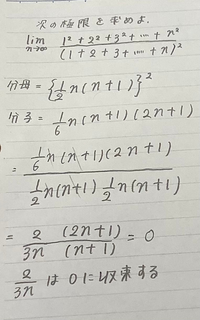 次の極限を求めよ.
lim n→∞ (1² + 2² + 3² + … + n²) / (1 + 2 + 3 + … + n)²
分母 = {1/2 n(n+1)}²
分子 = 1/6 n(n+1)(2n+1)
= (1/6 n(n+1)(2n+1)) / (1/2 n(n+1) 1/2 n(n+1))
= 2/3n (2n+1)/(n+1) = 0
2/3n は 0に収束する